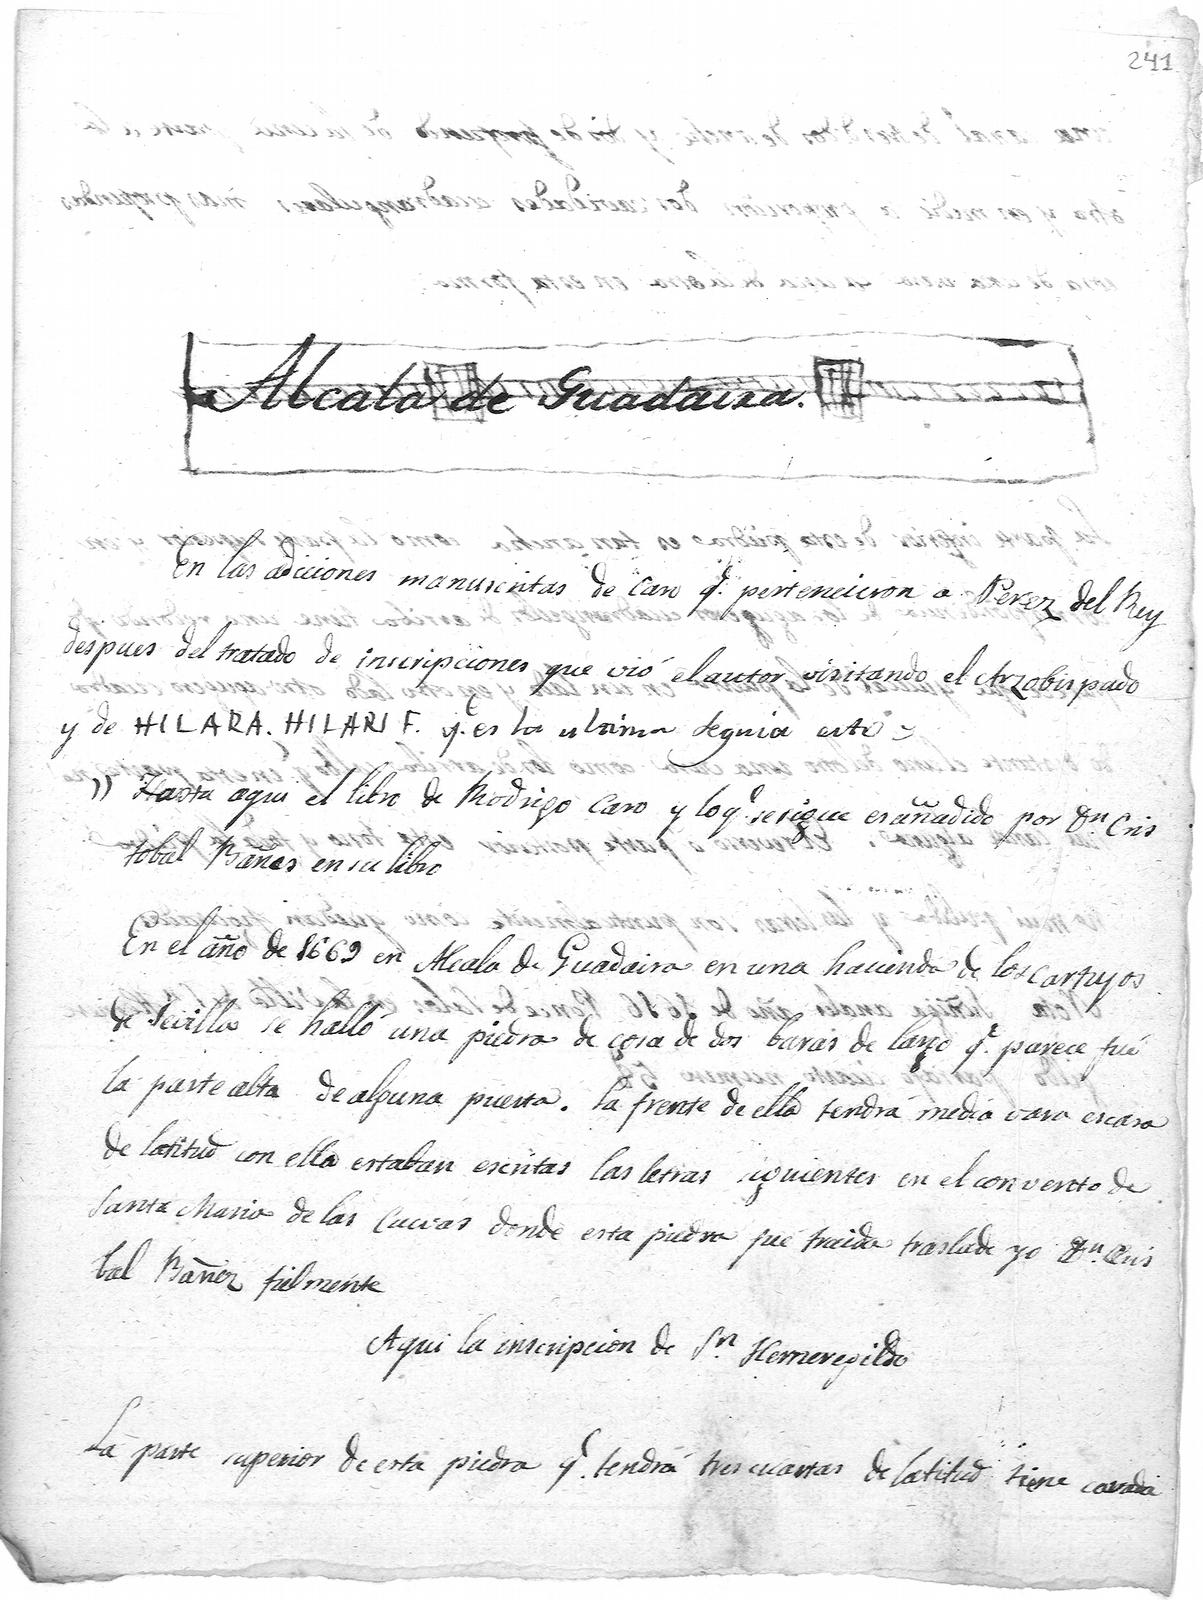 241
Alcala de Guadaira.
En las adiciones manuscritas de Caro q.e pertenecieron a Perez del Rey
despues del tratado de inscripciones que vió el autor visitando el Arzobispado
y de HILARA. HILARI F. q. es la ultima seguia este
" Hasta aqui el libro de Rodrigo Caro y lo q.e se sigue es añadido por D.n Cris
tobal Bañes en su libro
En el año de 1669 en Alcala de Guadaira en una hacienda de los Cartujos
de Sevilla se halló una piedra de cosa de dos baras de largo q.e parece fué
la parte alta de alguna puerta. la frente de ella tendrá media vara escasa
de latitud con ella estaban escritas las letras siguientes en el convento de
Santa Maria de las Cuevas donde esta piedra fué traida traslade yo D.n Cris
bal Bañez fielmente
Aqui la inscripcion de S.n Hermenegildo
La parte superior de esta piedra q.e tendrá tres cuartas de latitud tiene cavada